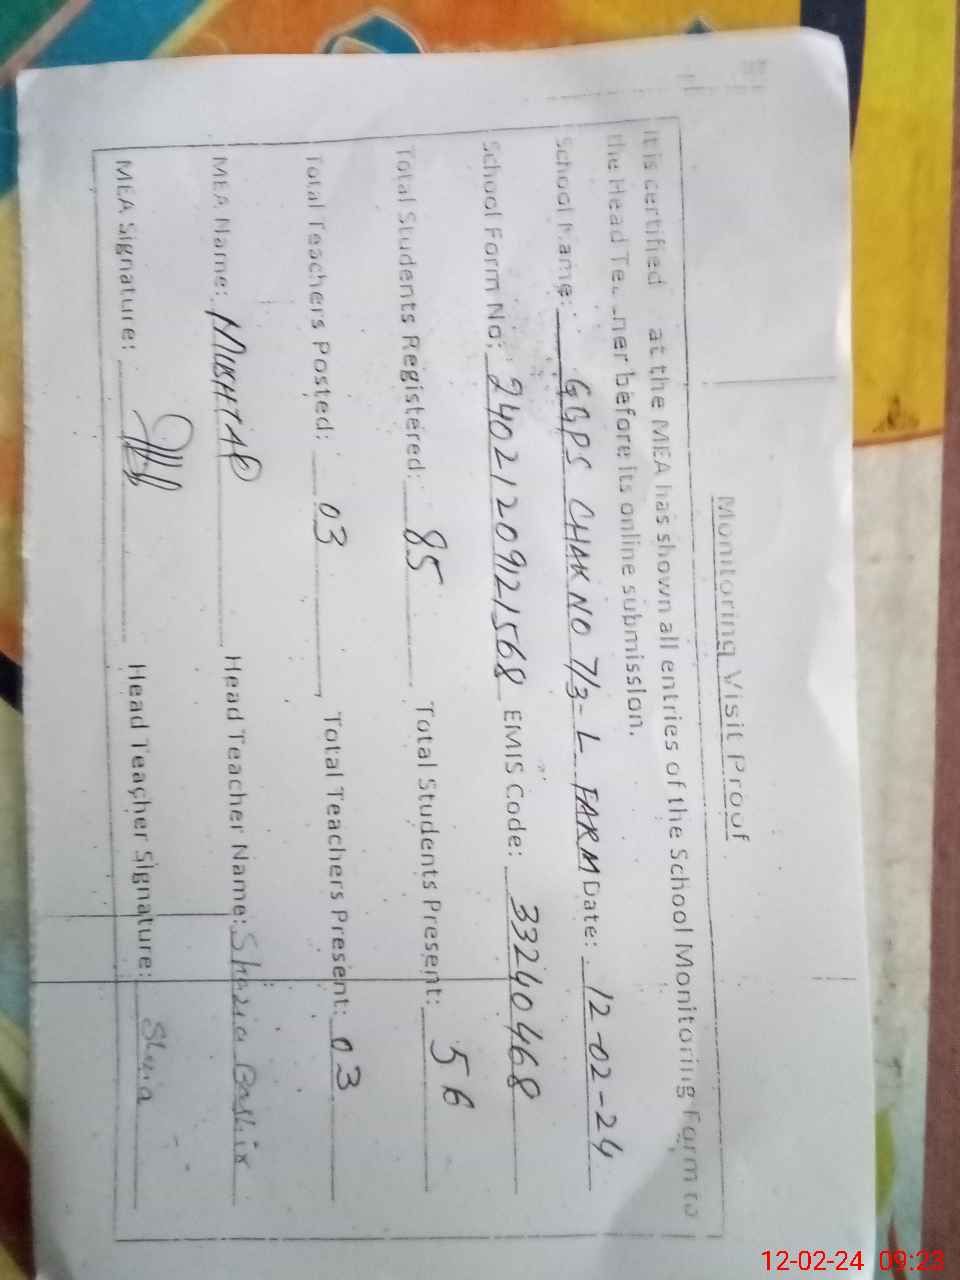 Monitoring Visit Proof
It is certified at the MEA has shown all entries of the School Monitoring Form to
the Head Te. ner before its online submission.
School Name: GGPS CHAK NO 7/3-L FARM Date: 12-02-24
School Form No: 24021209121568 EMIS Code: 33240468
Total Students Registered: 85 Total Students Present: 56
Total Teachers Posted: 03 Total Teachers Present: 03
MEA Name: MUSHTAQ Head Teacher Name: Shazia Bashir
MEA Signature: Head Teacher Signature: Shazia
12-02-24 09:23